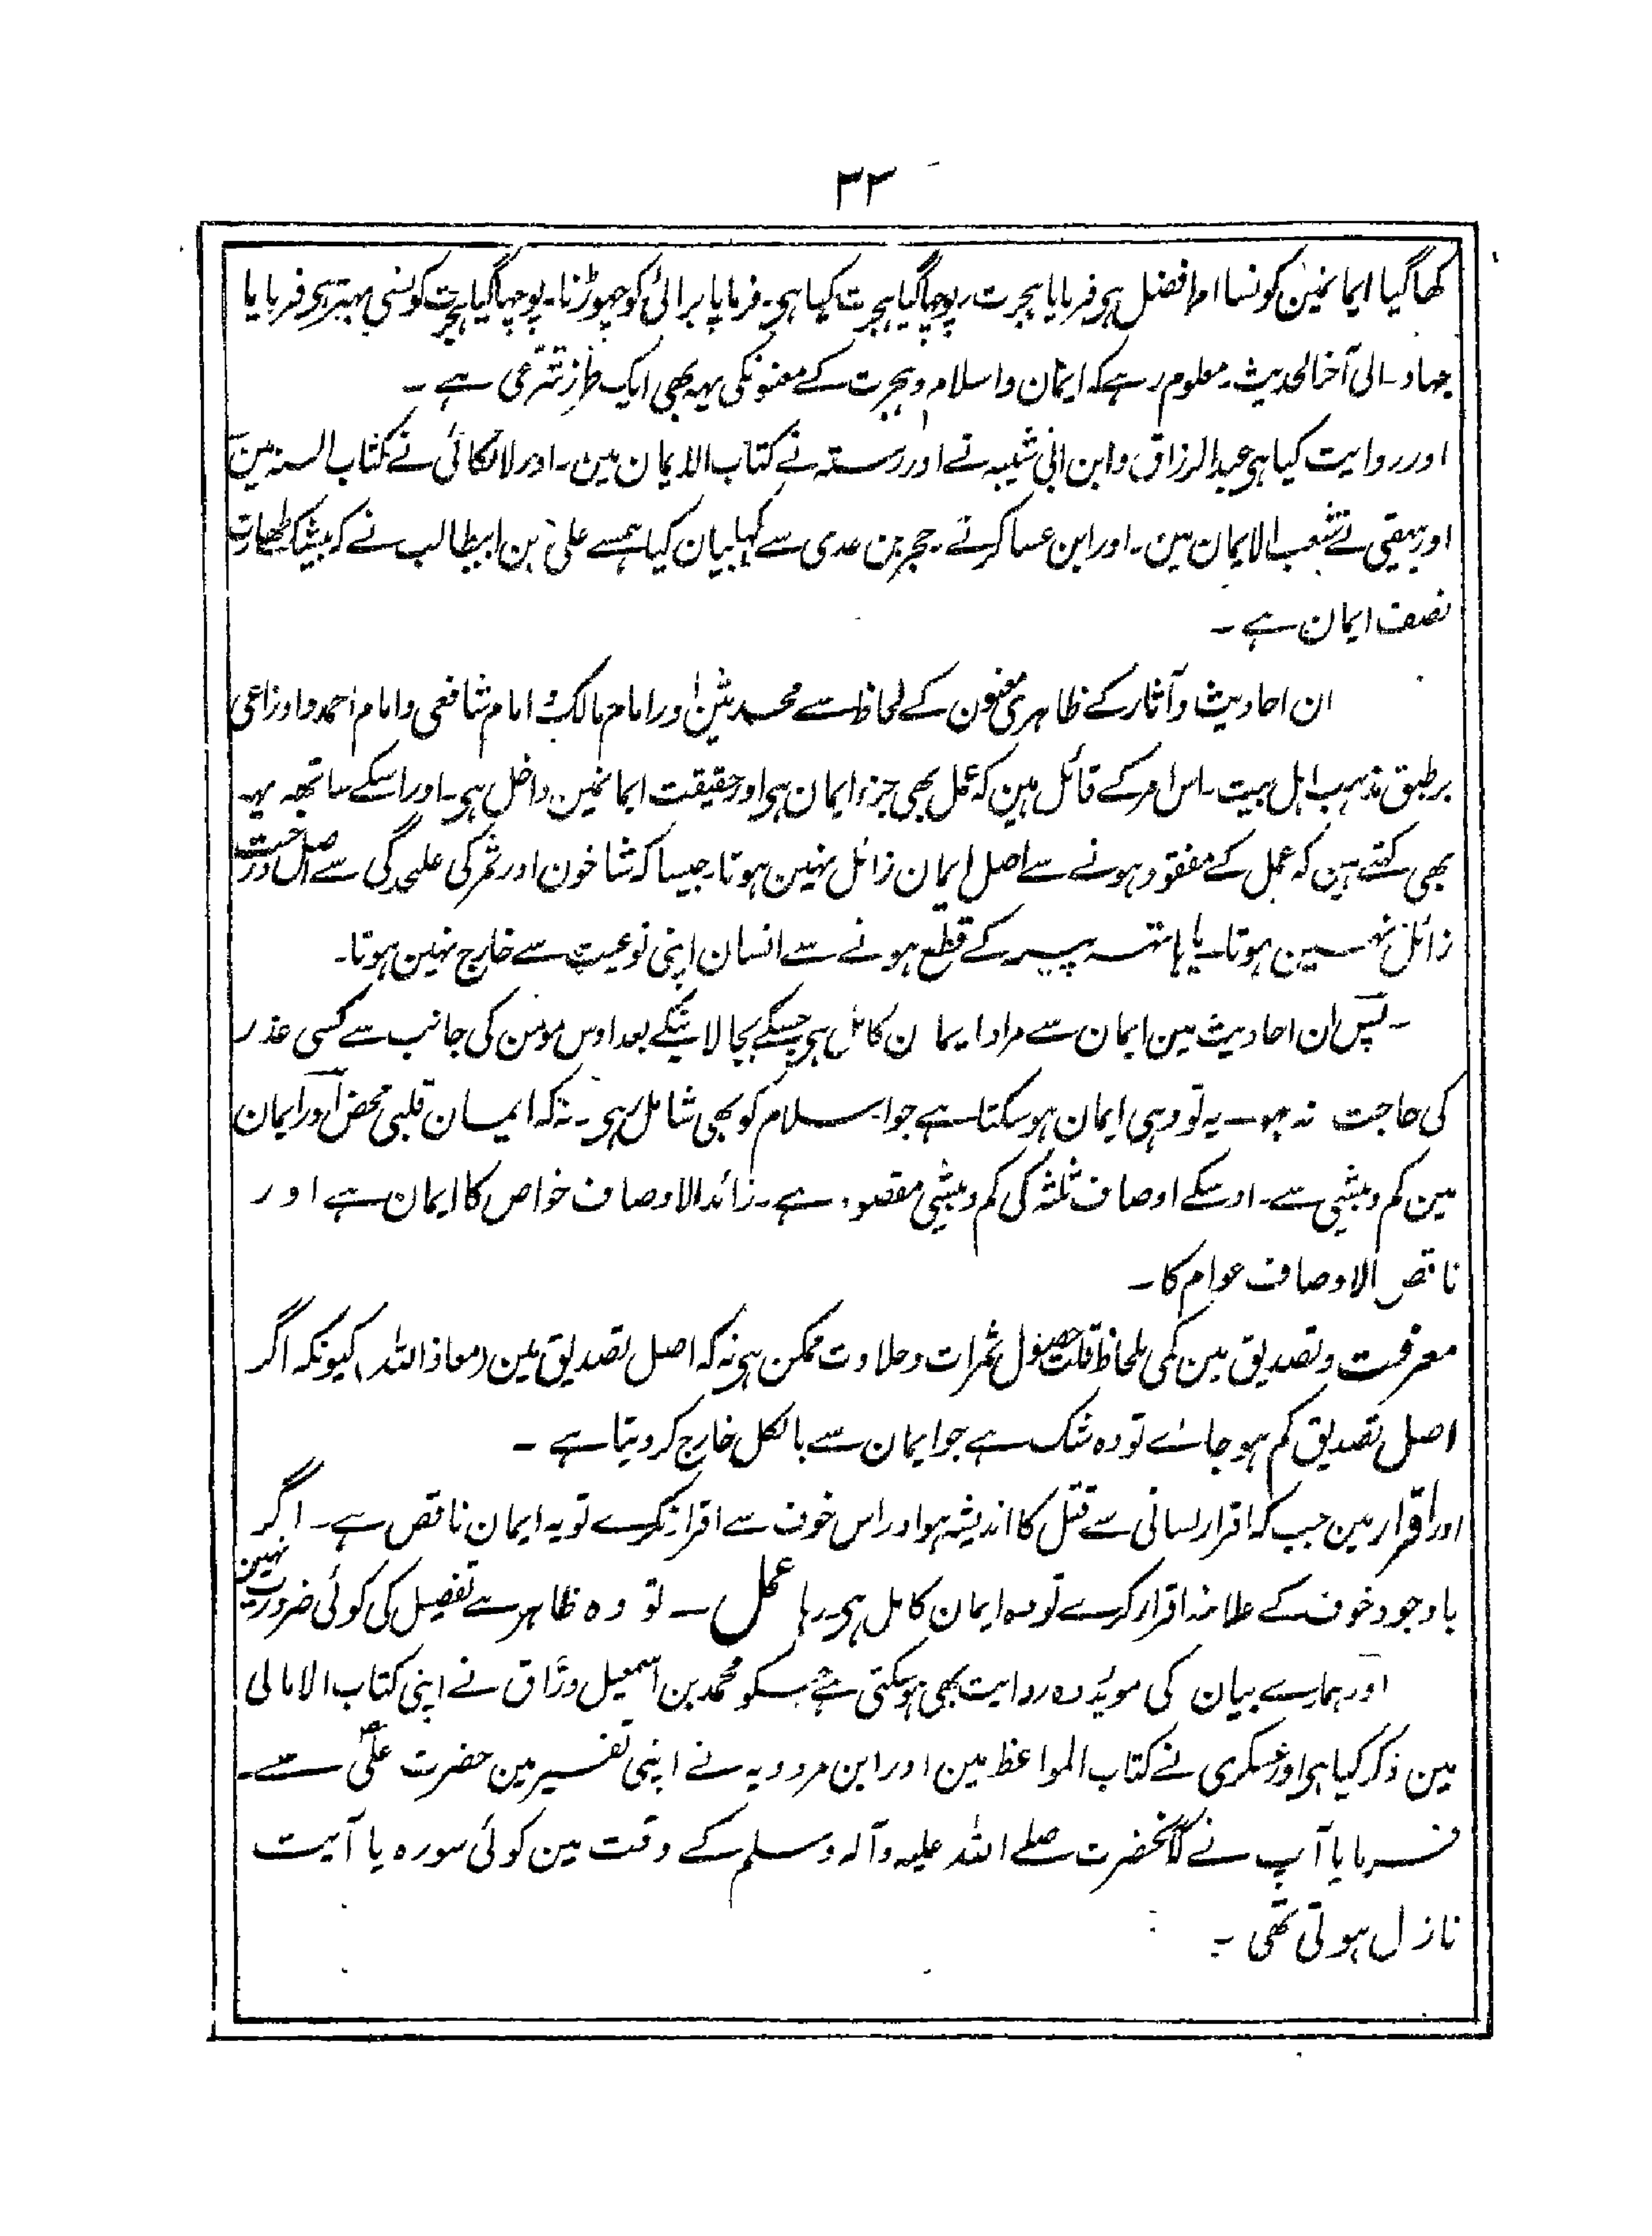 ٣٢
کھاگیا ایمانمین کونسا امر افضل ہی فرمایا ہجرت۔ پوچھاگیا ہجرت کیا ہی۔ فرمایا برائی کو چھوڑنا۔ پوچھاگیا ہجرت کونسی بہتر ہی فرمایا
جہاد۔ الی آخرالحدیث۔ معلوم رہے کہ ایمان و اسلام و ہجرت کے معنونکی یہہ بھی ایک طرز شرعی ہے ۔
اور روایت کیا ہی عبدالرزاق و ابن ابی شیبہ نے اور رستہ نے کتاب الایمان مین۔ اور لالکائی نے کتاب السنہ مین
اور بیہقی نے شعب الایمان مین۔ اور ابن عساکر نے۔ حجر بن عدی سے کہا بیان کیا ہمسے علی بن ابیطالب نے کہ بیشک طہارت
نصف ایمان ہے ۔
ان احادیث و آثار کے ظاہری مضمون کے لحاظ سے محدثین اور امام مالک و امام شافعی و امام احمد و اوزاعی
برطبق مذہب اہل بیت۔ اس امر کے قائل ہین کہ عمل بھی جزء ایمان ہی اور حقیقت ایمانمین داخل ہی۔ اور اسکے ساتھہ یہہ
بھی کہتے ہین کہ عمل کے مفقود ہونے سے اصل ایمان زائل نہین ہوتا۔ جیسا کہ شاخون اور ثمر کی علحدگی سے اصل درخت
زائل نہین ہوتا۔ یا ہاتھہ پیر کے قطع ہونے سے انسان اپنی نوعیت سے خارج نہین ہوتا۔
۔ پس ان احادیث مین ایمان سے مراد ایمان کامل ہی جسکے بجا لانیکے بعد اوس مومن کی جانب سے کسی عذر
کی حاجت نہ ہو۔ یہ تو وہی ایمان ہوسکتا ہے جو اسلام کو بھی شامل رہی۔ نہ کہ ایمان قلبی محض اور ایمان
مین کم و بیشی سے۔ اوسکے اوصاف ثلثہ کی کم و بیشی مقصود ہے۔ زائد الاوصاف خواص کا ایمان ہے اور
ناقص الاوصاف عوام کا ۔
معرفت و تصدیق مین کمی بلحاظ قلت حصول ثمرات و حلاوت ممکن ہی نہ کہ اصل تصدیق مین (معاذاللہ) کیونکہ اگر
اصل تصدیق کم ہوجائے تو وہ شک ہے جو ایمان سے بالکل خارج کر دیتا ہے ۔
اور اقرار مین جب کہ اقرار لسانی سے قتل کا اندیشہ ہو اور اس خوف سے اقرار نکرے تو یہ ایمان ناقص ہے۔ اگر
باوجود خوف کے علانیہ اقرار کرے تو وہ ایمان کامل ہی۔ رہا عمل ۔ تو وہ ظاہر ہے تفصیل کی کوئی ضرورت نہین
اور ہمارے بیان کی موئید وہ روایت بھی ہوسکتی ہے جسکو محمد بن اسمعیل وراق نے اپنی کتاب الامالی
مین ذکر کیا ہی اور عسکری نے کتاب المواعظ مین اور ابن مردویہ نے اپنی تفسیر مین حضرت علی سے۔
فرمایا آپ نے کہ آنحضرت صلے اللہ علیہ وآلہ وسلم کے وقت مین کوئی سورہ یا آیت
نازل ہوتی تھی ۔